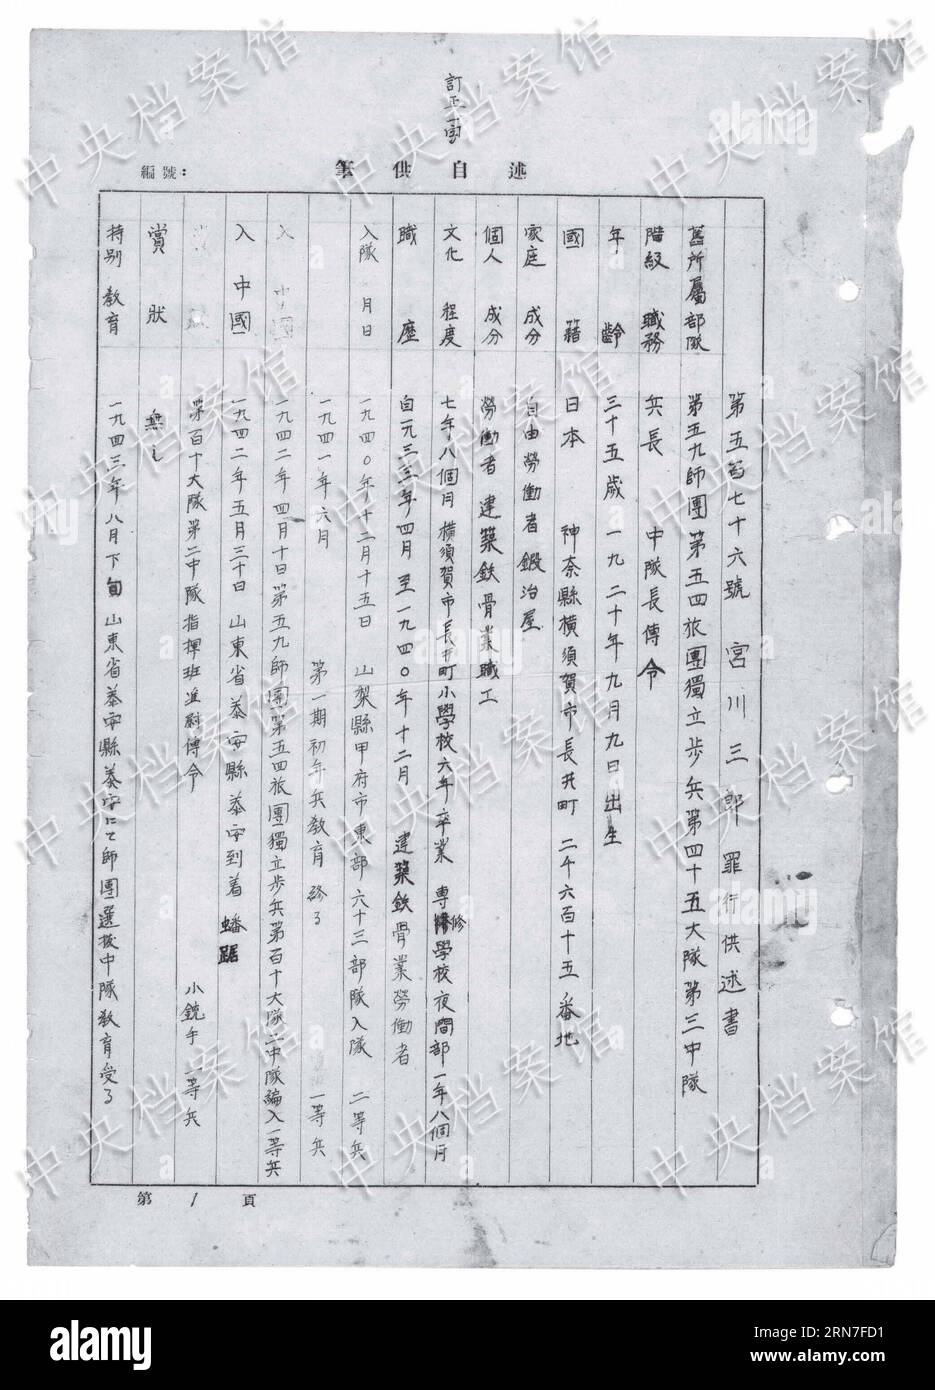 訂正一字
編號：
筆供自述
第五百七十六號 宮川三郎 罪行供述書
舊所屬部隊 第五九師團第五四旅團獨立步兵第四十五大隊第三中隊
階級職務 兵長 中隊長傳令
年齡 三十五歲 一九二十年九月九日出生
國籍 日本 神奈縣橫須賀市長井町 二千六百十五番地
家庭成分 自由勞働者 鍛冶屋
個人成分 勞働者 建築鉄骨業職工
文化程度 七年八個月 橫須賀市長井町小學校六年卒業 專修學校夜間部一年八個月
職歷 自一九三三年四月至一九四〇年十二月 建築鉄骨業勞働者
入隊月日 一九四〇年十二月十五日 山梨縣甲府市東部六十三部隊入隊 二等兵
一九四一年六月 第一期初年兵教育終了 一等兵
一九四二年四月十日第五九師團第五四旅團獨立步兵第百十大隊二中隊編入一等兵
入中國 一九四二年五月三十日 山東省泰安縣泰安到着 蟠踞
第百十大隊第二中隊指揮班連絡傳令 小銃手 一等兵
賞狀 無之
特別教育 一九四三年八月下旬 山東省泰安縣泰安にて師團選拔中隊教育受了
第1頁
中央档案馆
alamy
Image ID: 2RN7FD1
www.alamy.com